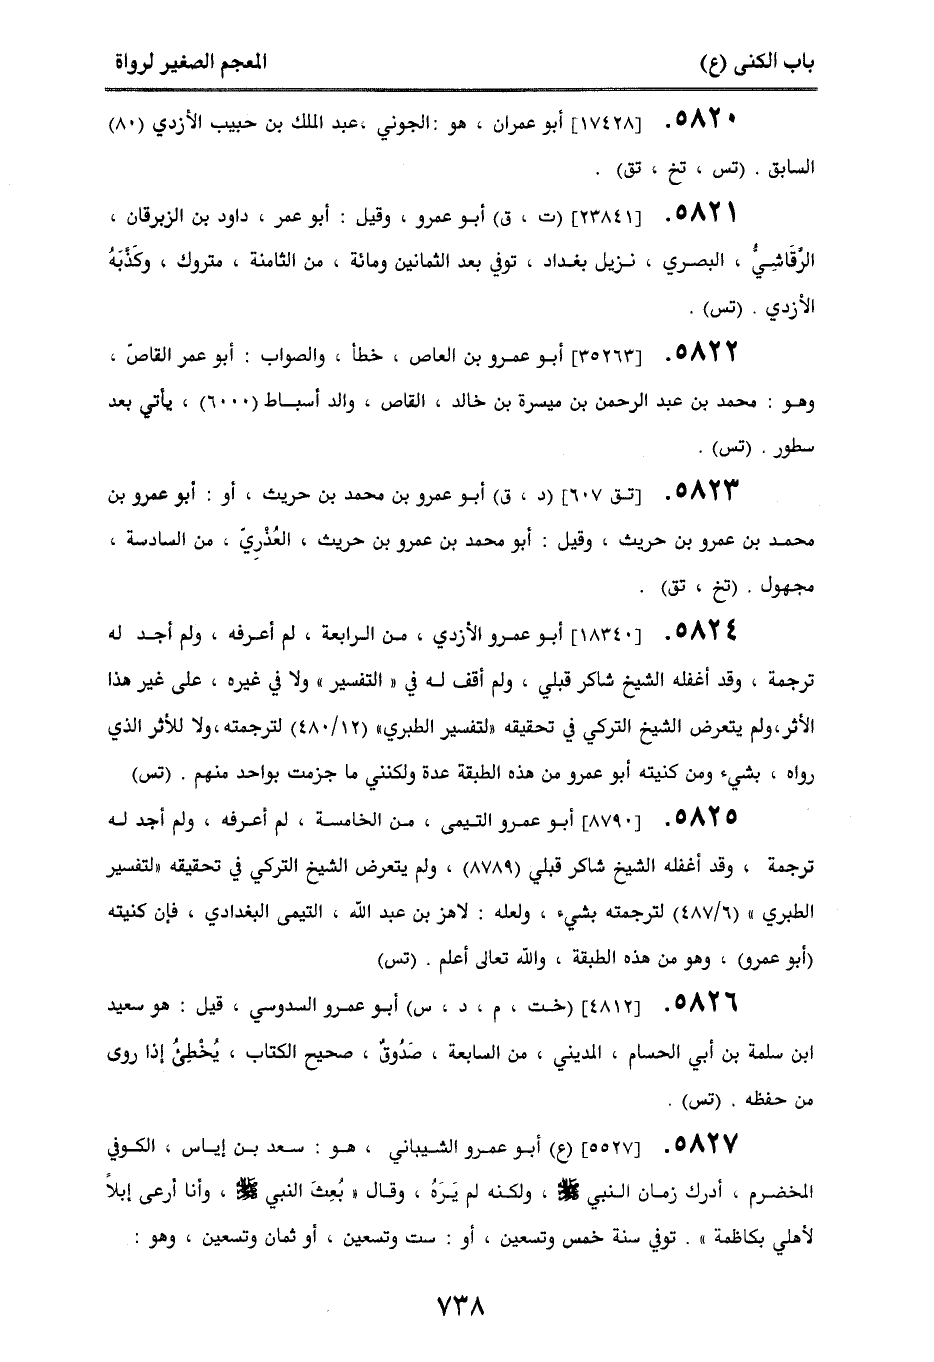 باب الكنى (ع)
المعجم الصغير لرواة
٥٨٢٠. [١٧٤٢٨] أبو عمران ، هو :الجوني ،عبد الملك بن حبيب الأزدي (٨٠)
السابق . (تس ، تخ ، تق) .
٥٨٢١. [٢٣٨٤١] (ت ، ق) أبـو عمرو ، وقيل : أبو عمر ، داود بن الزبرقان ،
الرَّقَاشِيُّ ، البصري ، نـزيل بغـداد ، توفي بعد الثمانين ومائة ، من الثامنة ، متروك ، وكَذَّبَهُ
الأزدي . (تس) .
٥٨٢٢. [٣٥٢٦٣] أبـو عمـرو بن العاص ، خطأ ، والصواب : أبو عمر القاصّ ،
وهـو : محمد بن عبد الرحمن بن ميسرة بن خالد ، القاص ، والد أسبـاط (٦٠٠٠) ، يأتي بعد
سطور . (تس) .
٥٨٢٣. [تـق ٦٠٧] (د ، ق) أبـو عمرو بن محمد بن حريث ، أو : أبو عمرو بن
محمـد بن عمرو بن حريث ، وقيل : أبو محمد بن عمرو بن حريث ، العُذْرِيّ ، من السادسة ،
مجهول . (تخ ، تق) .
٥٨٢٤. [١٨٣٤٠] أبـو عمـرو الأزدي ، مـن الـرابعة ، لم أعـرفه ، ولم أجـد له
ترجمة ، وقد أغفله الشيخ شاكر قبلي ، ولم أقف لـه في « التفسير » ولا في غيره ، على غير هذا
الأثر،ولم يتعرض الشيخ التركي في تحقيقه «لتفسير الطبري» (٤٨٠/١٢) لترجمته،ولا للأثر الذي
رواه ، بشيء ومن كنيته أبو عمرو من هذه الطبقة عدة ولكنني ما جزمت بواحد منهم . (تس)
٥٨٢٥. [٨٧٩٠] أبـو عمـرو التـيمى ، مـن الخامسـة ، لم أعـرفه ، ولم أجد لـه
ترجمة ، وقد أغفله الشيخ شاكر قبلي (٨٧٨٩) ، ولم يتعرض الشيخ التركي في تحقيقه «لتفسير
الطبري » (٤٨٧/٦) لترجمته بشيء ، ولعله : لاهز بن عبد الله ، التيمى البغدادي ، فإن كنيته
(أبو عمرو) ، وهو من هذه الطبقة ، والله تعالى أعلم . (تس)
٥٨٢٦. [٤٨١٢] (خـت ، م ، د ، س) أبـو عمـرو السدوسي ، قيل : هو سعيد
ابن سلمة بن أبي الحسام ، المديني ، من السابعة ، صَدُوقٌ ، صحيح الكتاب ، يُخْطِئُ إذا روى
من حفظه . (تس) .
٥٨٢٧. [٥٥٢٧] (ع) أبـو عمـرو الشـيباني ، هـو : سـعد بـن إيـاس ، الكـوفي
المخضـرم ، أدرك زمـان الـنبي ﷺ ، ولكـنه لم يَـرَهُ ، وقـال « بُعِثَ النبي ﷺ ، وأنا أرعى إبلاً
لأهلي بكاظمة » . توفي سنة خمس وتسعين ، أو : ست وتسعين ، أو ثمان وتسعين ، وهو :
٧٣٨